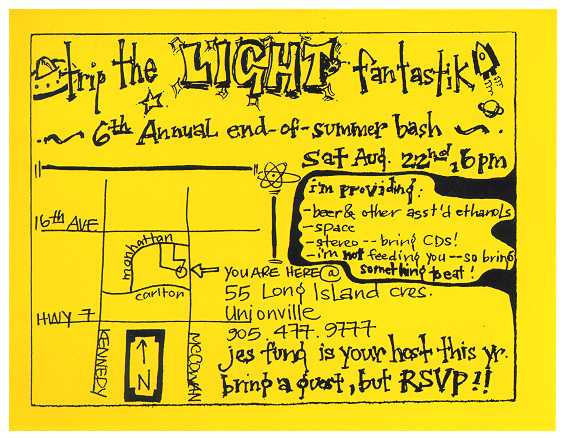 trip the LIGHT fantastik
6th Annual end-of-summer bash
Sat Aug. 22nd, 6pm
i'm providing:
-beer & other asst'd ethanols
-space
-stereo--bring CDs!
-i'm not feeding you--so bring
something 2eat!
16th AVE
manhattan
carlton
HWY 7
KENNEDY
N
MCCOWAN
YOU ARE HERE @
55 Long Island cres.
Unionville
905.477.9777
jes fung is your host this yr.
bring a guest, but RSVP!!